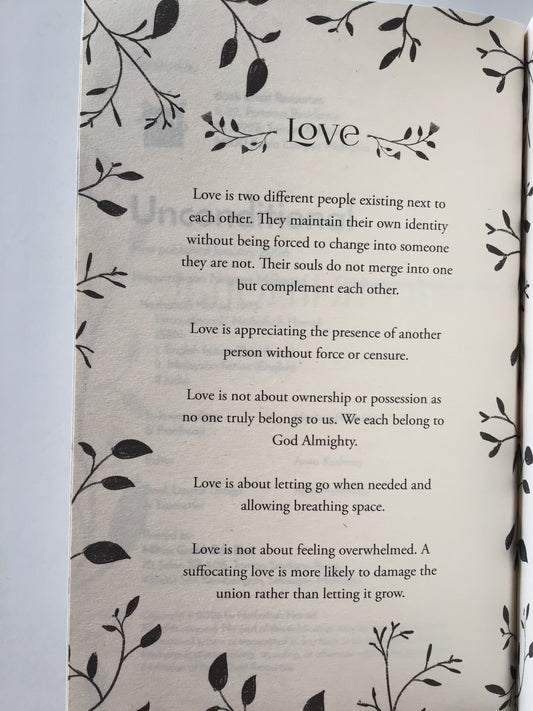 Love
Love is two different people existing next to
each other. They maintain their own identity
without being forced to change into someone
they are not. Their souls do not merge into one
but complement each other.
Love is appreciating the presence of another
person without force or censure.
Love is not about ownership or possession as
no one truly belongs to us. We each belong to
God Almighty.
Love is about letting go when needed and
allowing breathing space.
Love is not about feeling overwhelmed. A
suffocating love is more likely to damage the
union rather than letting it grow.